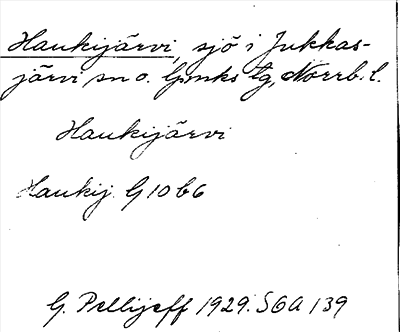 Haukijärvi, sjö i Jukkas-
järvi sn o. lpmks tg, Norrb. l.
Haukijärvi
Haukij. G10b6
G. Pellijeff 1929. SOA 139